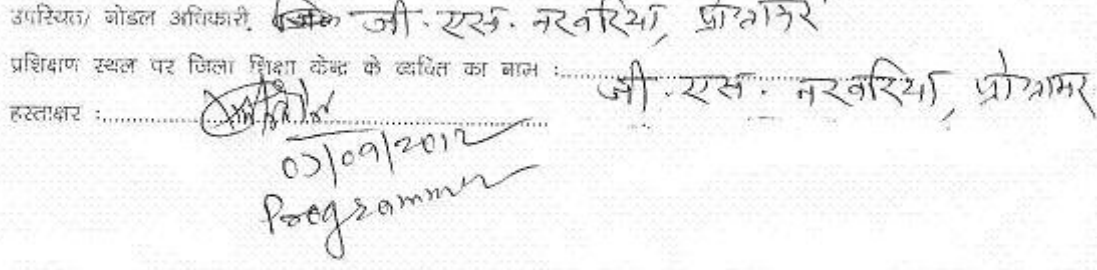 उपस्थित/ नोडल अधिकारी. जी. एस. नरवरिया, प्रोग्रामर
प्रशिक्षण स्थल पर जिला शिक्षा केन्द्र के व्यक्ति का नाम :.......... जी. एस. नरवरिया, प्रोग्रामर
हस्ताक्षर :..........
07/09/2012
Programmer